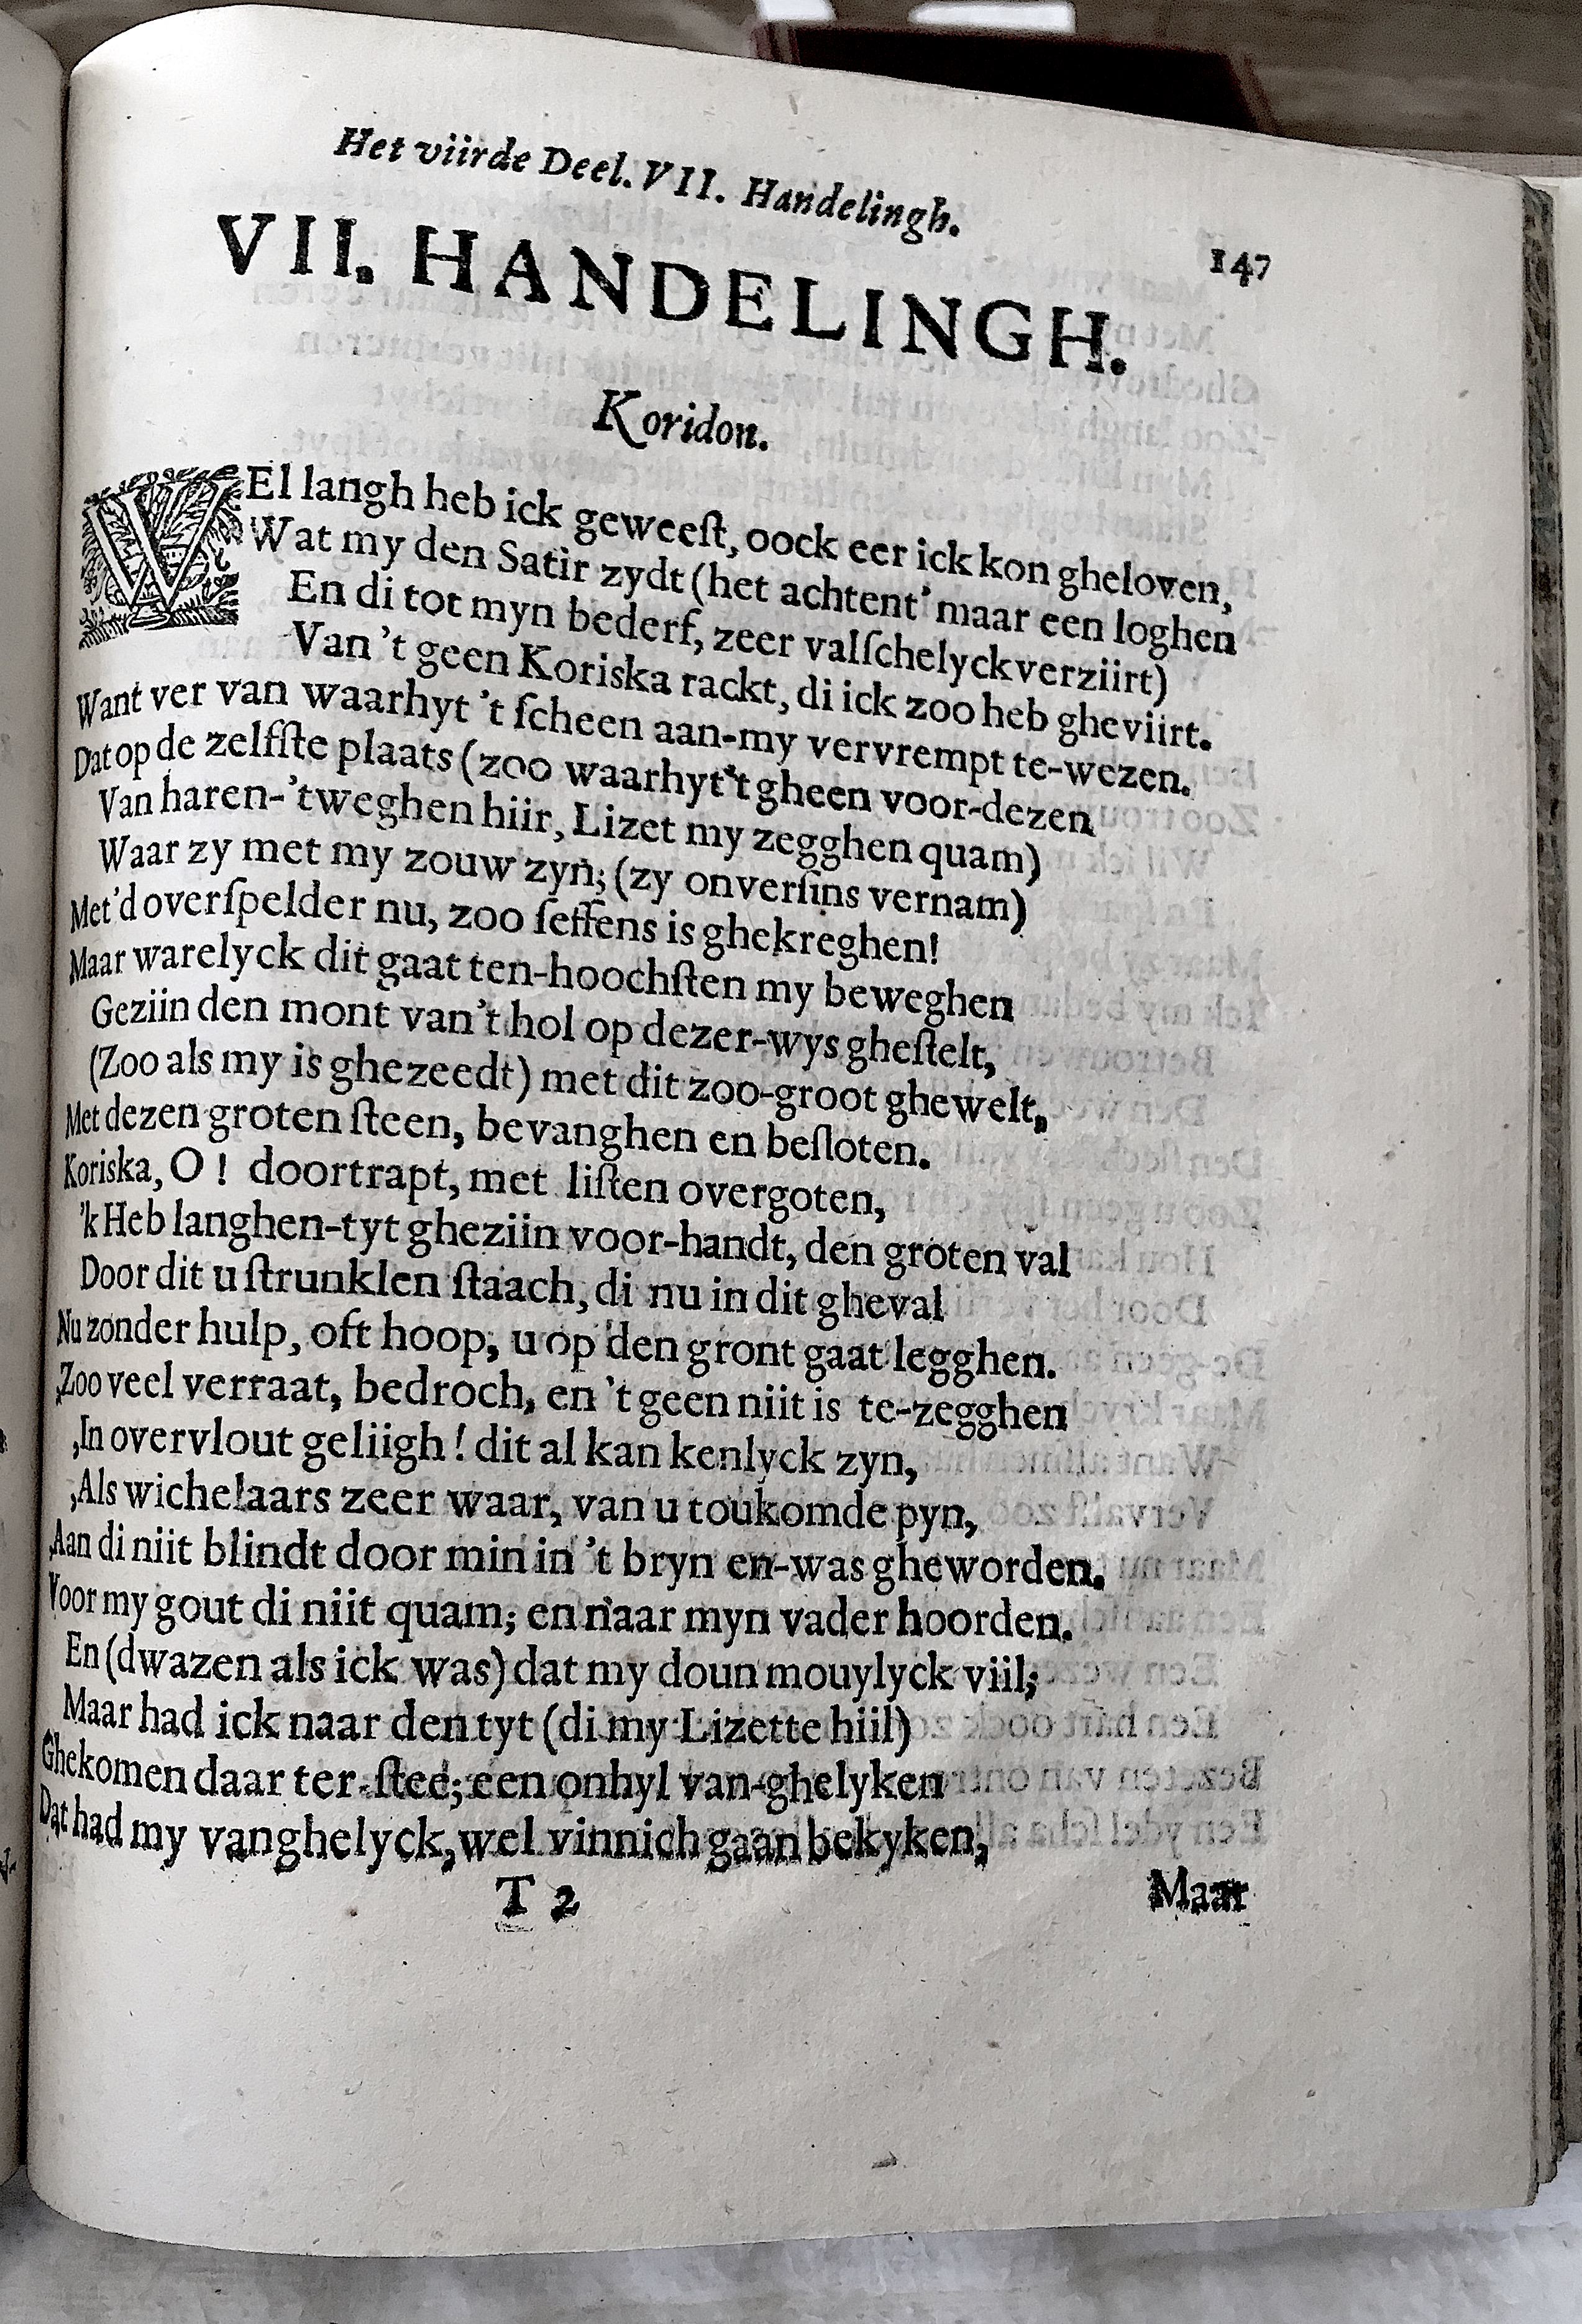 Het viirde Deel. VII. Handelingh.
147
VII. HANDELINGH.
Koridon.
VEl langh heb ick geweeſt, oock eer ick kon gheloven,
Wat my den Satir zydt (het achtent' maar een loghen
En di tot myn bederf, zeer valſchelyck verziirt)
Van 't geen Koriska rackt, di ick zoo heb gheviirt.
Want ver van waarhyt 't ſcheen aan-my vervrempt te-wezen.
Dat op de zelfſte plaats (zoo waarhyt't gheen voor-dezen
Van haren-'tweghen hiir, Lizet my zegghen quam)
Waar zy met my zouw zyn; (zy onverſins vernam)
Met'd overſpelder nu, zoo ſeffens is ghekreghen!
Maar warelyck dit gaat ten-hoochſten my beweghen
Geziin den mont van't hol op dezer-wys gheſtelt,
(Zoo als my is ghezeedt) met dit zoo-groot ghewelt,
Met dezen groten ſteen, bevanghen en beſloten.
Koriska, O! doortrapt, met liſten overgoten,
'k Heb langhen-tyt gheziin voor-handt, den groten val
Door dit u ſtrunklen ſtaach, di nu in dit gheval
Nu zonder hulp, oft hoop, u op den gront gaat legghen.
,Zoo veel verraat, bedroch, en 't geen niit is te-zegghen
,In overvlout geliigh! dit al kan kenlyck zyn,
,Als wichelaars zeer waar, van u toukomde pyn,
,Aan di niit blindt door min in 't bryn en-was gheworden.
Voor my gout di niit quam; en naar myn vader hoorden.
En (dwazen als ick was) dat my doun mouylyck viil;
Maar had ick naar den tyt (di my Lizette hiil)
Ghekomen daar ter-ſtee; een onhyl van-ghelyken
Dat had my vanghelyck, wel vinnich gaan bekyken,
T 2
Maar